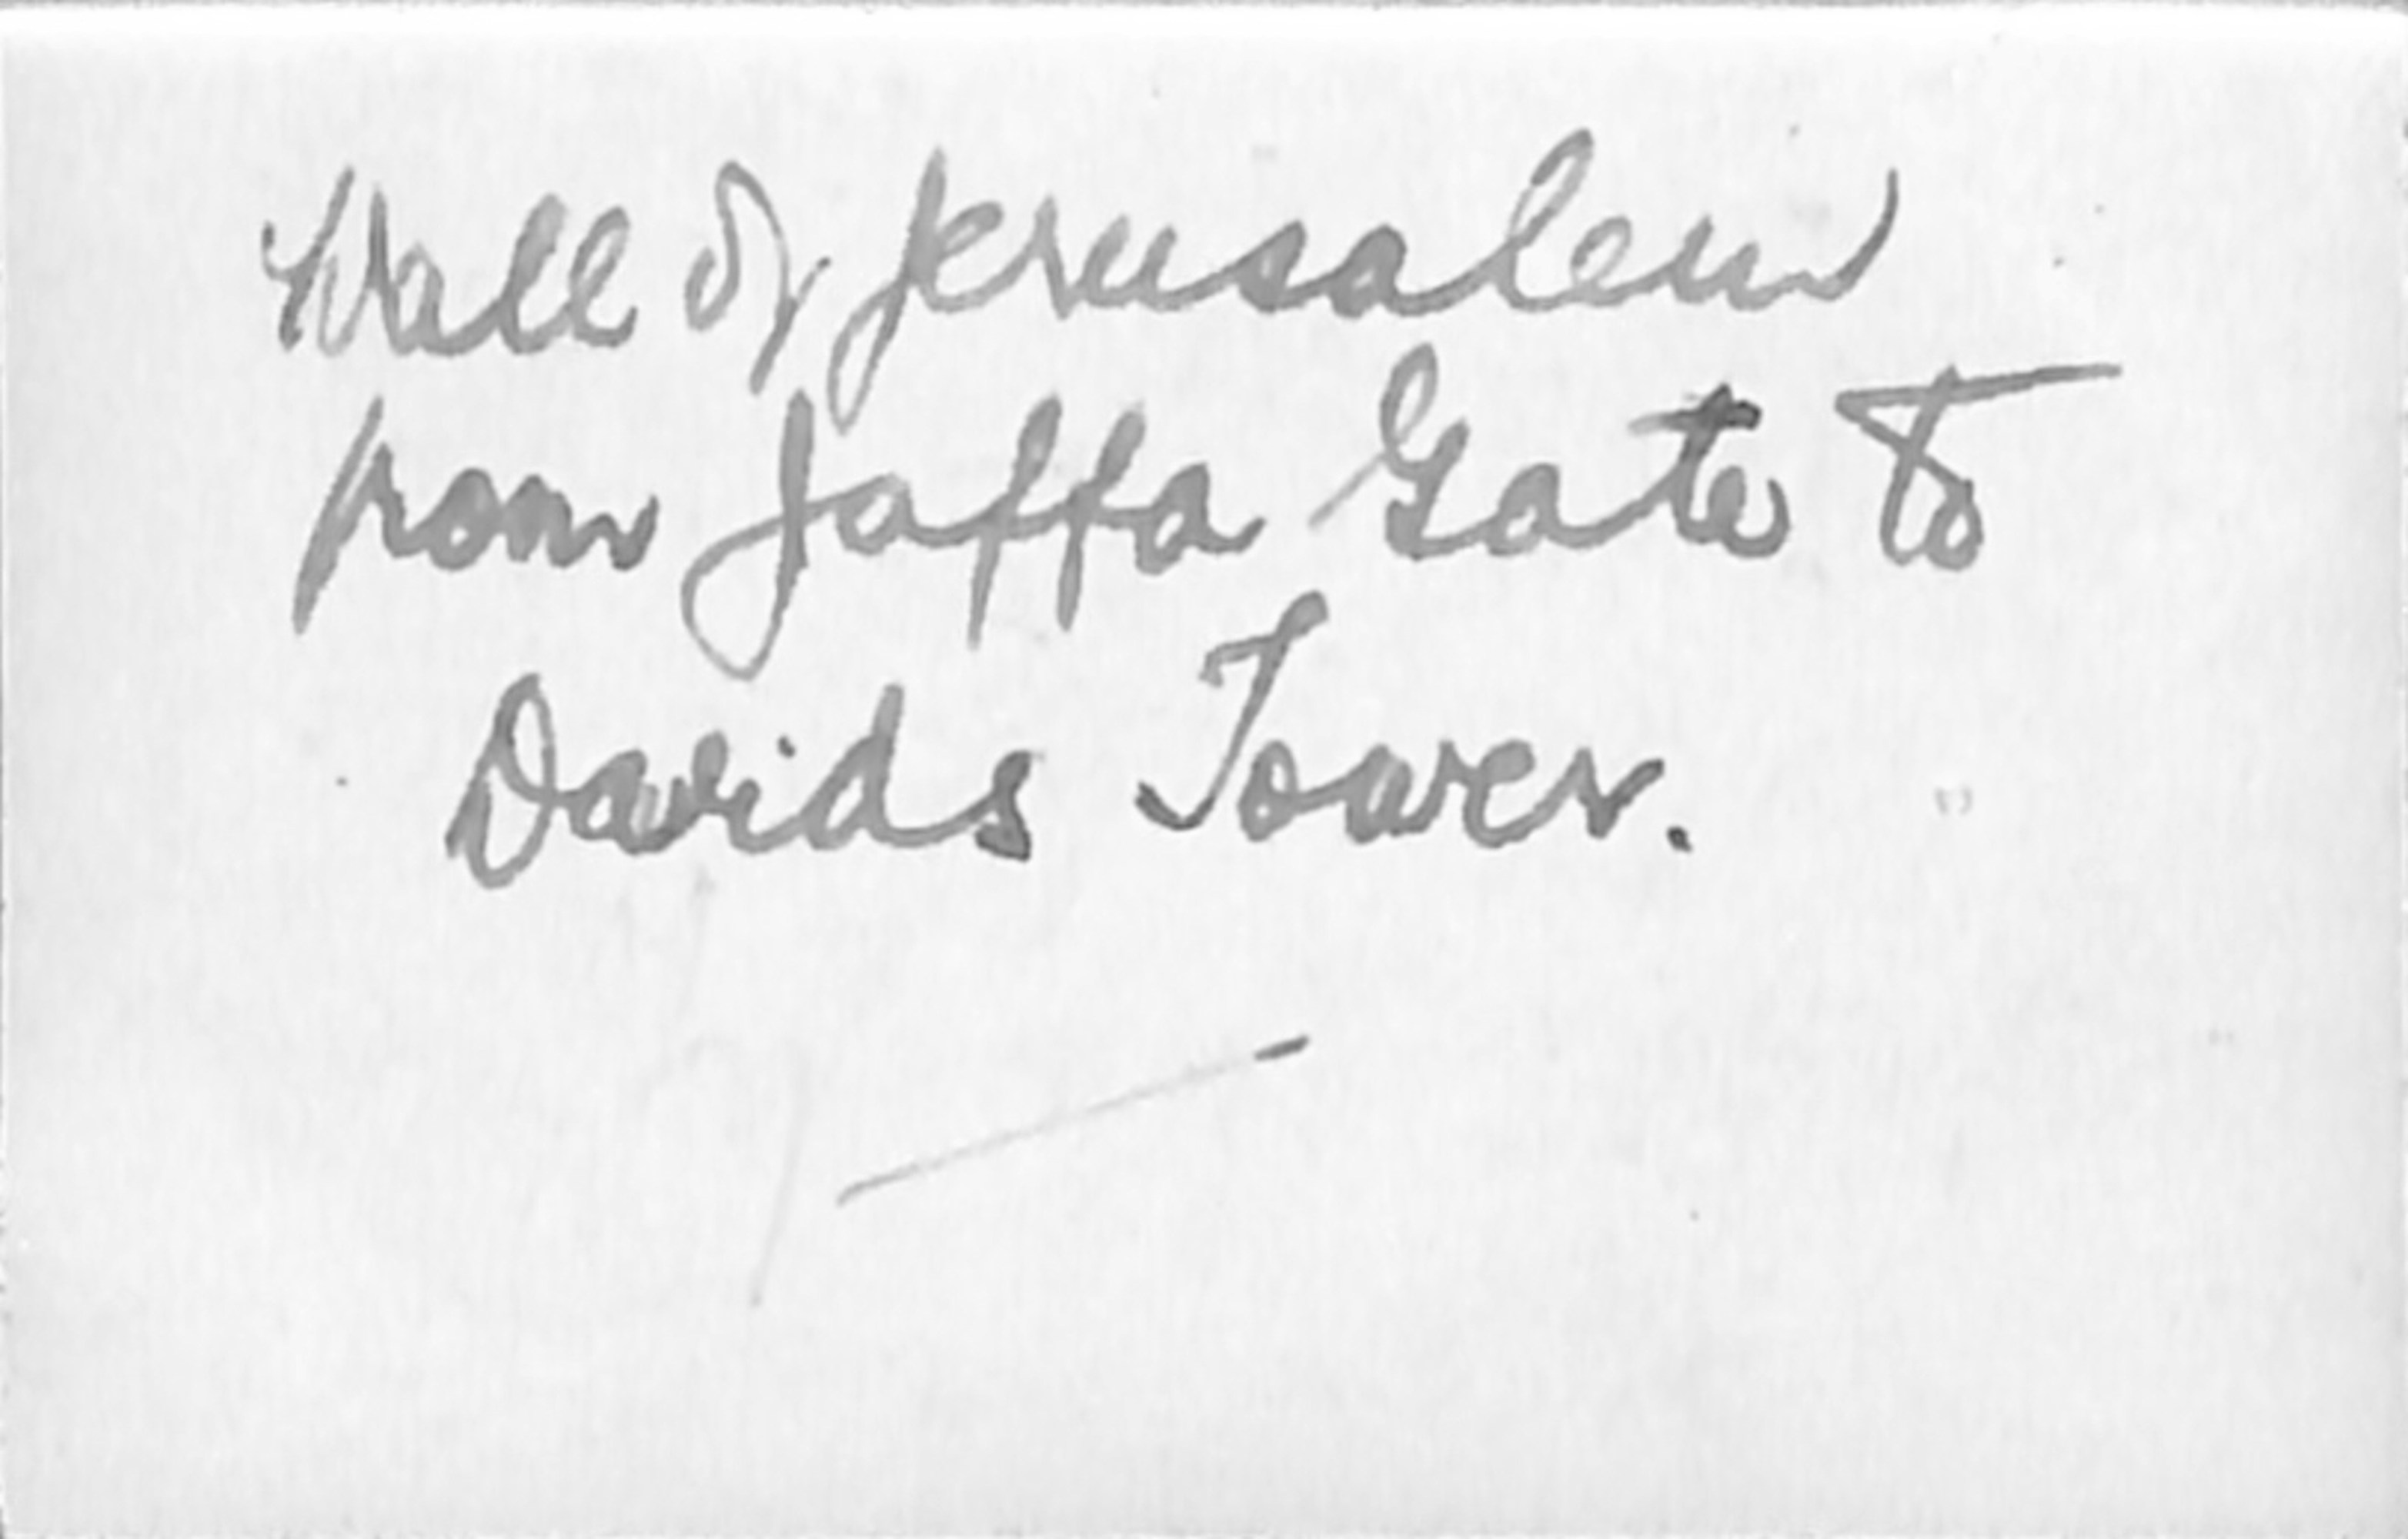 Wall of Jerusalem
from Jaffa Gate to
Davids Tower.